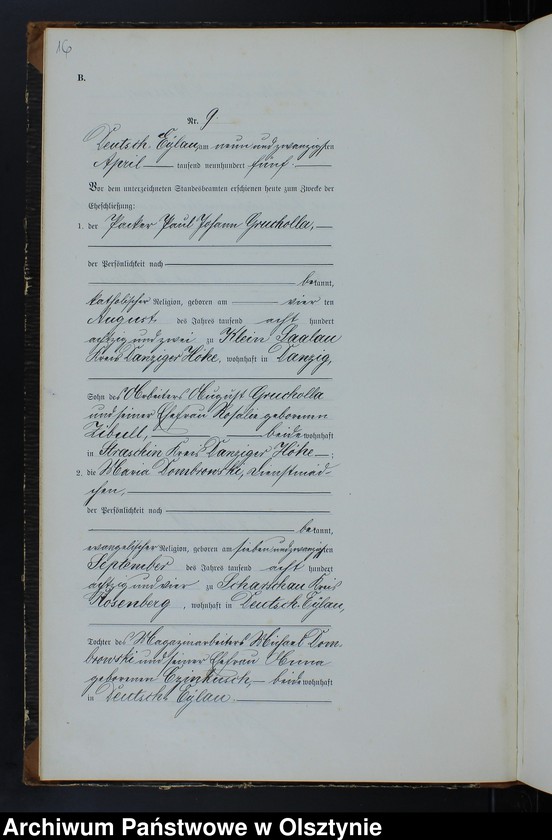 16
B.
Nr. 9
Deutsch. Eylau, am neun und zwanzigsten
April tausend neunhundert fünf.
Vor dem unterzeichneten Standesbeamten erschienen heute zum Zwecke der
Eheschließung:
1. der Packer Paul Johann Grucholla,
der Persönlichkeit nach
bekannt,
katholischer Religion, geboren am vier ten
August des Jahres tausend acht hundert
achtzig und zwei zu Klein Saalau
Kreis Danziger Höhe, wohnhaft in Danzig,
Sohn des Arbeiters August Grucholla
und seiner Ehefrau Rosalie geborenen
beide wohnhaft
in Straschin Kreis Danziger Höhe;
2. die Maria Dombrowski, Dienstmäd-
chen,
der Persönlichkeit nach
bekannt,
evangelischer Religion, geboren am sieben und zwanzigsten
September des Jahres tausend acht hundert
achtzig und vier zu Scharschau Kreis
Rosenberg, wohnhaft in Deutsch. Eylau,
Tochter des Magazinarbeiters Michael Dom-
browski und seiner Ehefrau Anna
geborenen beide wohnhaft
in Deutsch Eylau
Archiwum Państwowe w Olsztynie